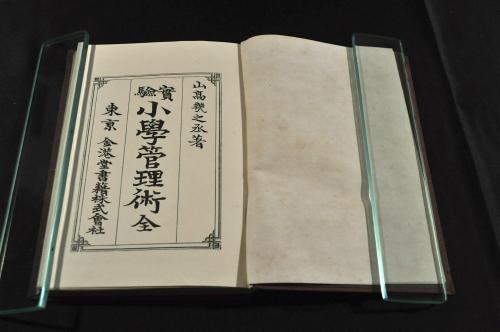 山高幾之丞著
實驗
小學管理術 全
東京 金港堂書籍株式會社